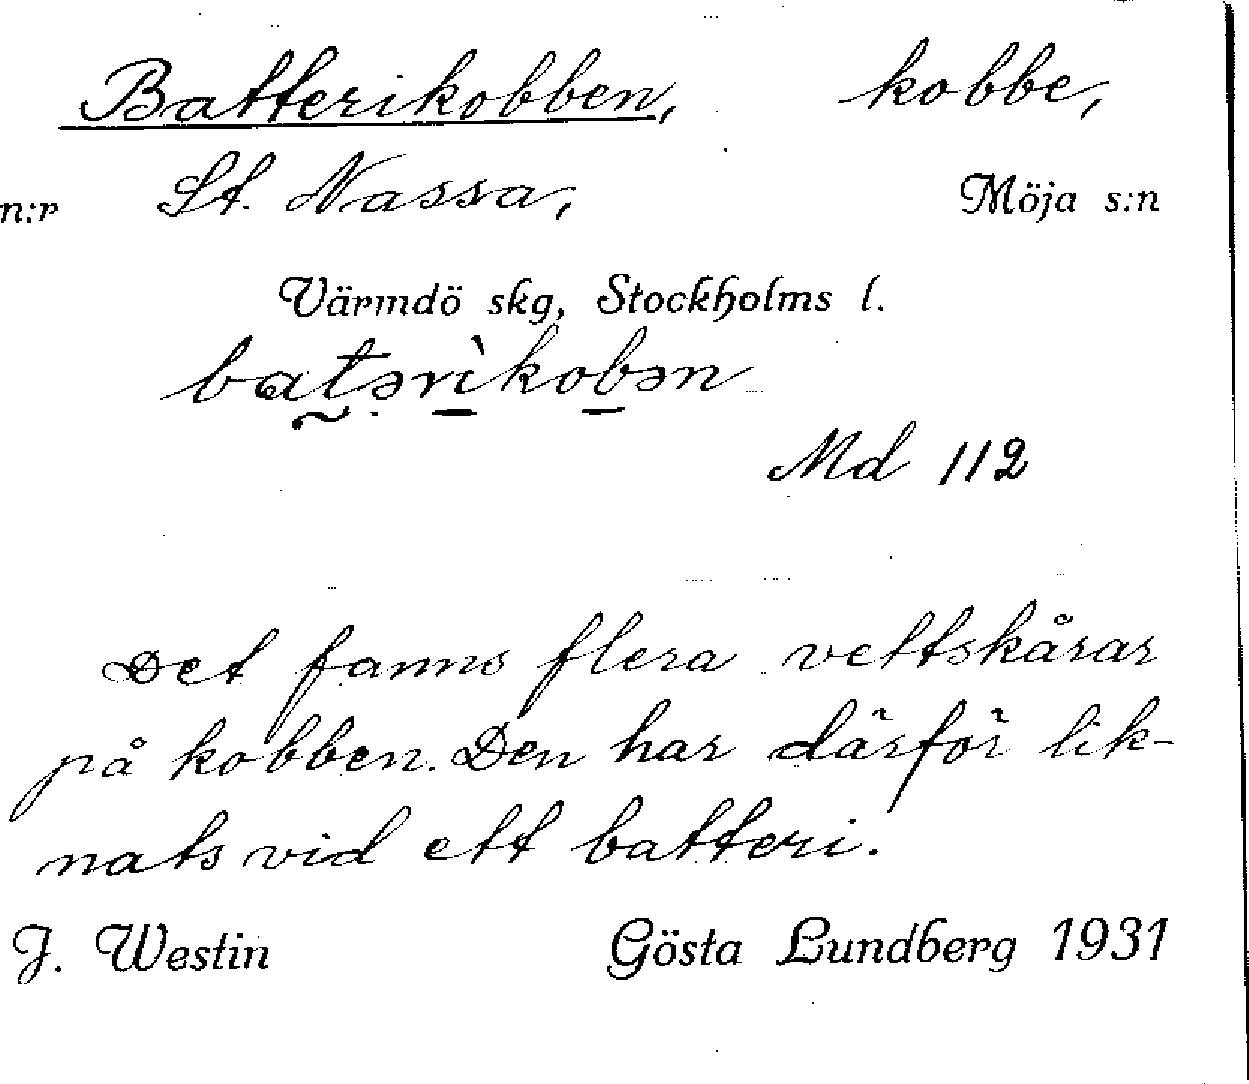 Batterikobben, kobbe,
n:r St. Nassa, Möja s:n
Värmdö skg, Stockholms l.
batərìkobən
Md 112
Det fanns flera vettskårar
på kobben. Den har därför lik-
nats vid ett batteri.
J. Westin Gösta Lundberg 1931